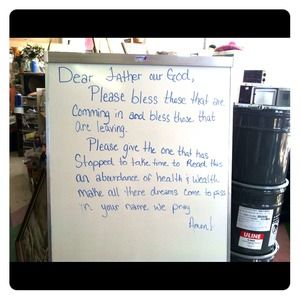 Dear Father our God,
Please bless those that are
Comming in and bless those that
are leaving.
Please give the one that has
Stopped to take time to Read this
an abundance of health & wealth
make all there dreams come to pass
in your name we pray
Amen!
ULINE